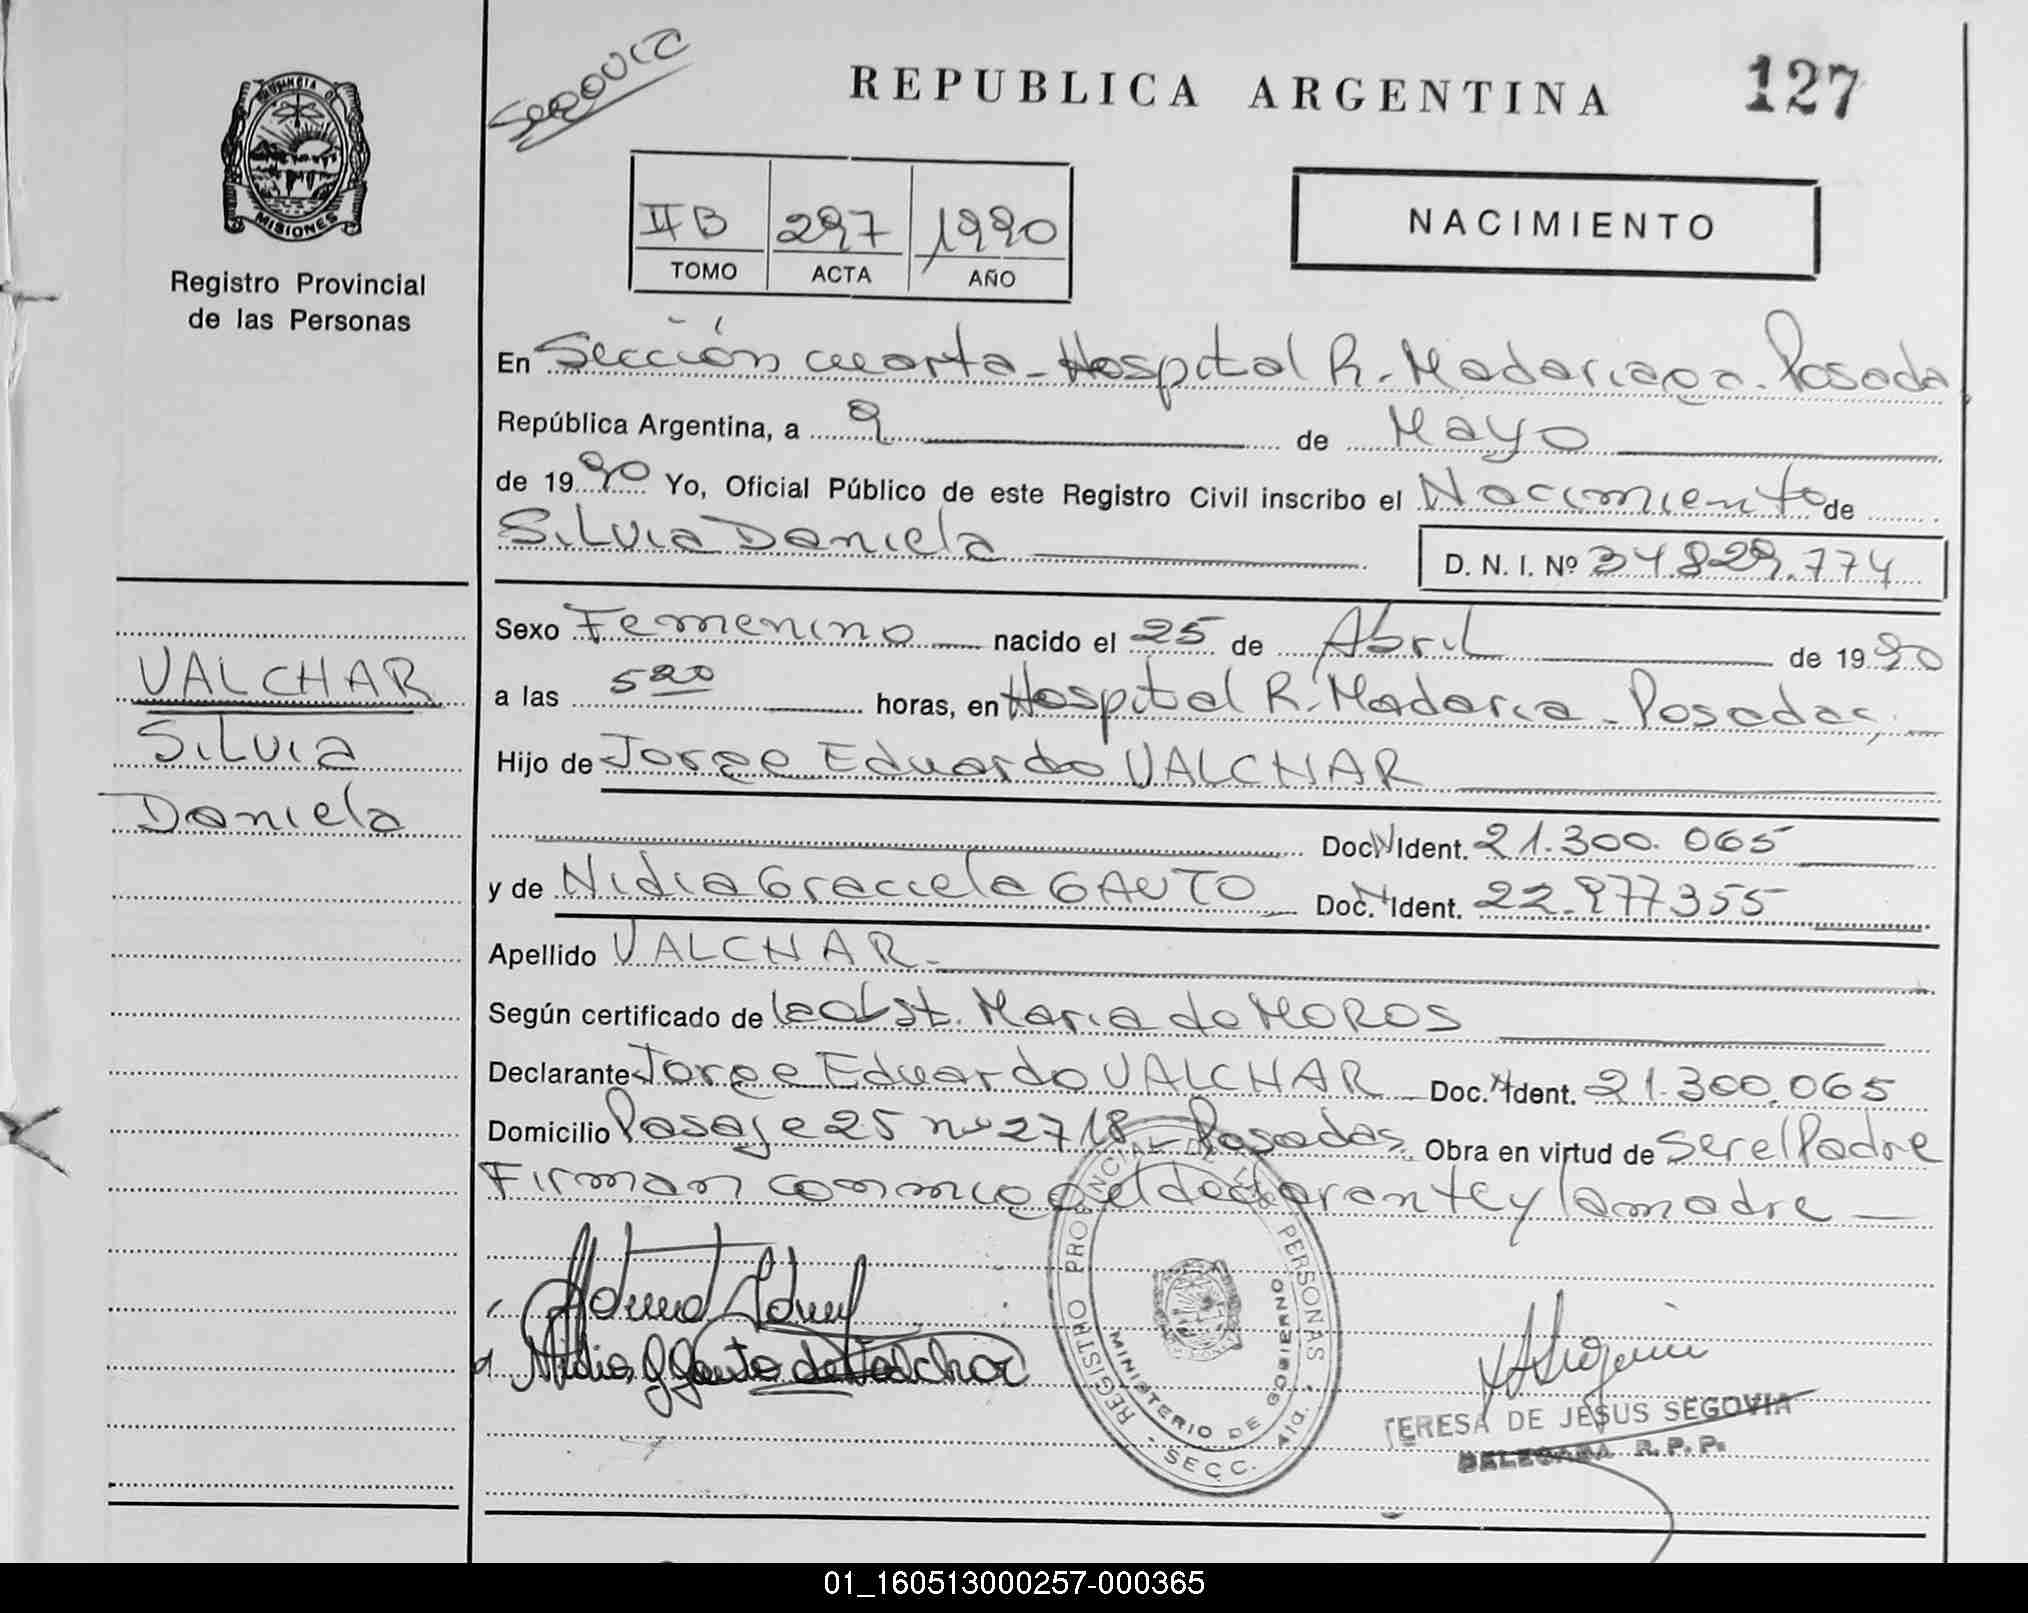 Segovia
REPUBLICA ARGENTINA
127
PROVINCIA DE
MISIONES
Registro Provincial
de las Personas
II B 297 1990
TOMO ACTA AÑO
NACIMIENTO
En Sección cuarta - Hospital R. Madariaga. Posada
República Argentina, a 9 de Mayo
de 1990 Yo, Oficial Público de este Registro Civil inscribo el Nacimiento de
Silvia Daniela
D. N. I. Nº 34.829.774
VALCHAR
Silvia
Daniela
Sexo Femenino nacido el 25 de Abril de 1990
a las 5 20 horas, en Hospital R. Madaria - Posadas,
Hijo de Jorge Eduardo VALCHAR
Doc. N Ident. 21.300.065
y de Nidia Graciela GAUTO Doc. N Ident. 22.977355
Apellido VALCHAR.
Según certificado de la obst. Maria de MOROS
Declarante Jorge Eduardo VALCHAR Doc. N Ident. 21.300.065
Domicilio Pasaje 25 nº 2718 - Posadas. Obra en virtud de ser el Padre
Firman conmigo el declarante y la madre
Nidia G Gauto de Valchar
REGISTRO PROVINCIAL DE LAS PERSONAS
MINISTERIO DE GOBIERNO
SECC. 4ta.
TERESA DE JESUS SEGOVIA
DELEGADA R. P. P.
01_160513000257-000365